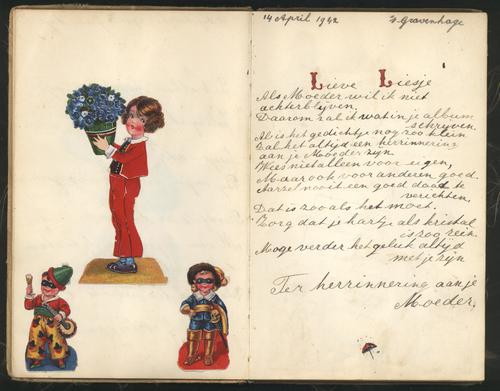 14 April 1942 's Gravenhage
Lieve Liesje
Als Moeder wil ik niet
achterblijven,
Daarom zal ik wat in je album
schrijven.
Al is het gedichtje nog zoo klein
Zal het altijd een herrinnering
aan je Moeder zijn.
Wees niet alleen voor eigen,
Maar ook voor anderen goed.
Aarzel nooit een goed daad te
verichten.
Dat is zoo als het moet.
Zorg dat je hartje als kristal
is zoo rein
Moge verder het geluk altijd
met je zijn
Ter herrinnering aan je
Moeder.